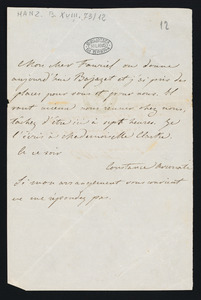 HANZ. B. XVIII, 53/12
12
Mon cher Fauriel on donne
aujourd'hui Bajazet et j'ai pris des
places pour vous et pour nous. Il
vaut mieux vous rendre chez nous,
tachez d'être ici à sept heures. Je
l'écris à Mademoiselle Clarke.
à ce soir
Constance
Si mon arrangement vous convient
ne me répondez pas.